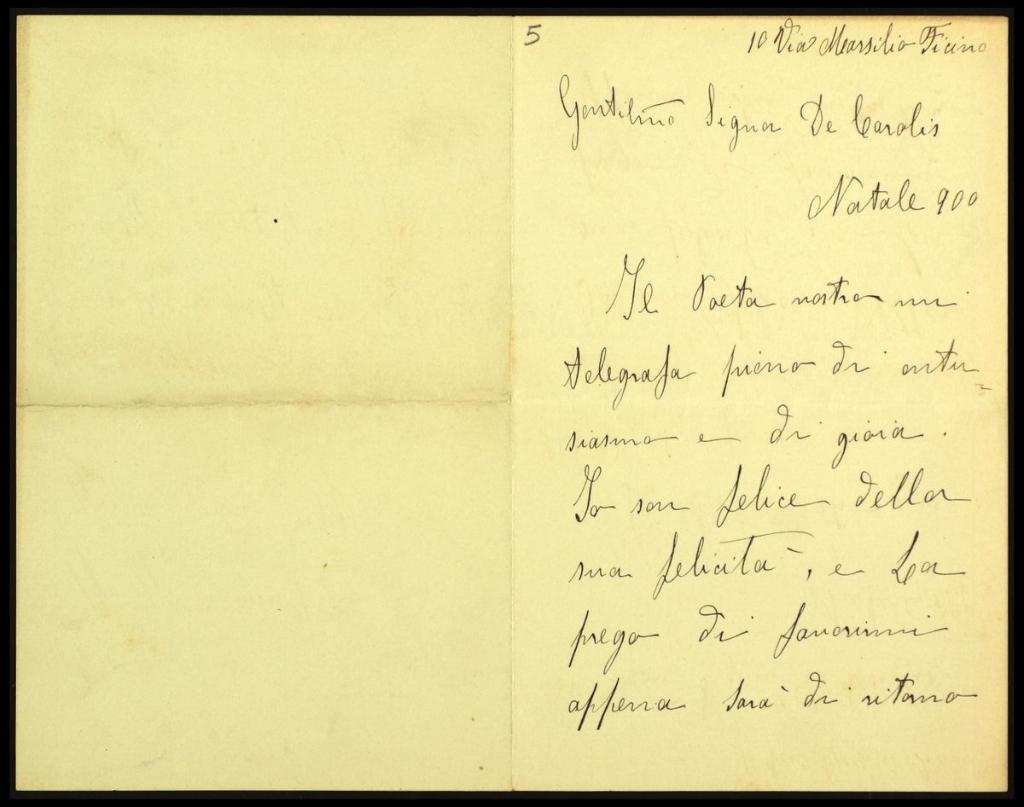 5
10 Via Marsilio Ficino
Gentilmo Signor De Carolis
Natale 900
Il Poeta nostro mi
telegrafa pieno di entu=
siasmo e di gioia.
Io son felice della
sua felicità, e La
prego di favorirmi
appena sarà di ritorno